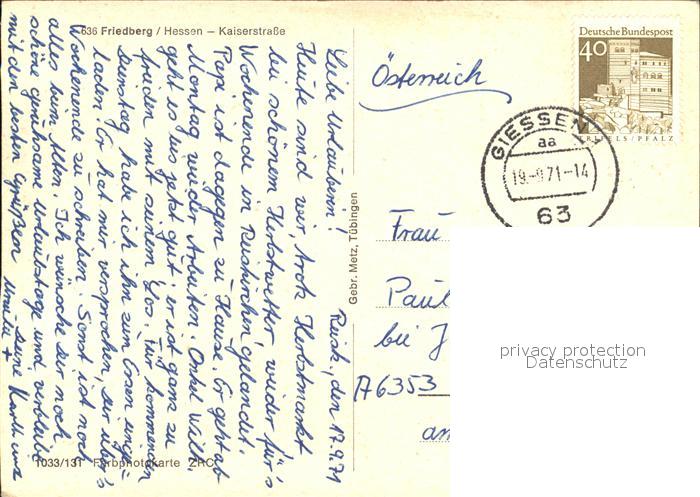 636 Friedberg / Hessen – Kaiserstraße
Reisk., den 17.9.71
Liebe Urlauberin!
Heute sind wir, trotz Herbstmarkt
bei schönem Herbstwetter wieder für's
Wochenende in Reiskirchen gelandet.
Papi ist dagegen zu Hause. Er geht ab
Montag wieder arbeiten. Onkel Willi
geht es bis jetzt gut; er ist ganz zu
frieden mit seinem Los. Für kommenden
Dienstag habe ich ihn zum Essen einge-
laden. Er hat mir versprochen, Dir über's
Wochenende zu schreiben. Sonst ist noch
alles beim Alten. Ich wünsche Dir noch
schöne geruhsame Urlaubstage und verbleibe
mit den besten Grüßen
Deine
1033/131 Farbphotokarte ZRC
Gebr. Metz, Tübingen
Deutsche Bundespost
40
TRIFELS/PFALZ
GIESSEN
aa
19.-9.71-14
63
Österreich
Frau
Paul
bei J
A6353
am
privacy protection
Datenschutz